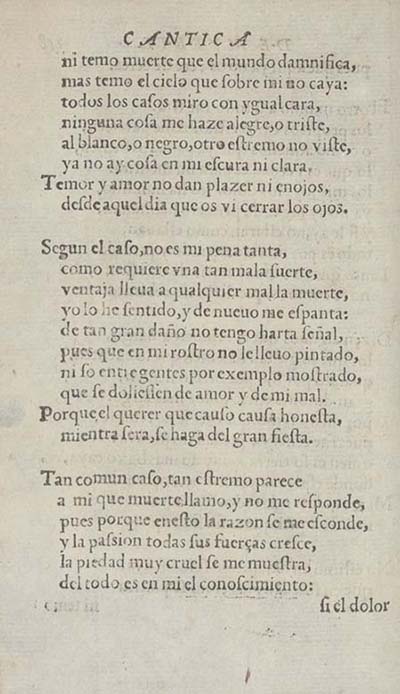 CANTICA
ni temo muerte que el mundo damnifica,
mas temo el cielo que sobre mi no caya:
todos los casos miro con ygual cara,
ninguna cosa me haze alegre, o triste,
al blanco, o negro, otro estremo no viste,
ya no ay cosa en mi escura ni clara,
Temor y amor no dan plazer ni enojos,
desde aquel dia que os vi cerrar los ojos.
Segun el caso, no es mi pena tanta,
como requiere vna tan mala suerte,
ventaja lleua a qualquier mal la muerte,
yo lo he sentido, y de nueuo me espanta:
de tan gran daño no tengo harta señal,
pues que en mi rostro no le lleuo pintado,
ni so entre gentes por exemplo mostrado,
que se doliessen de amor y de mi mal.
Porque el querer que causo causa honesta,
mientra sera, se haga del gran fiesta.
Tan comun caso, tan estremo parece
a mi que muerte llamo, y no me responde,
pues porque enesto la razon se me esconde,
y la passion todas sus fuerças cresce,
la piedad muy cruel se me muestra,
del todo es en mi el conoscimiento:
si el dolor